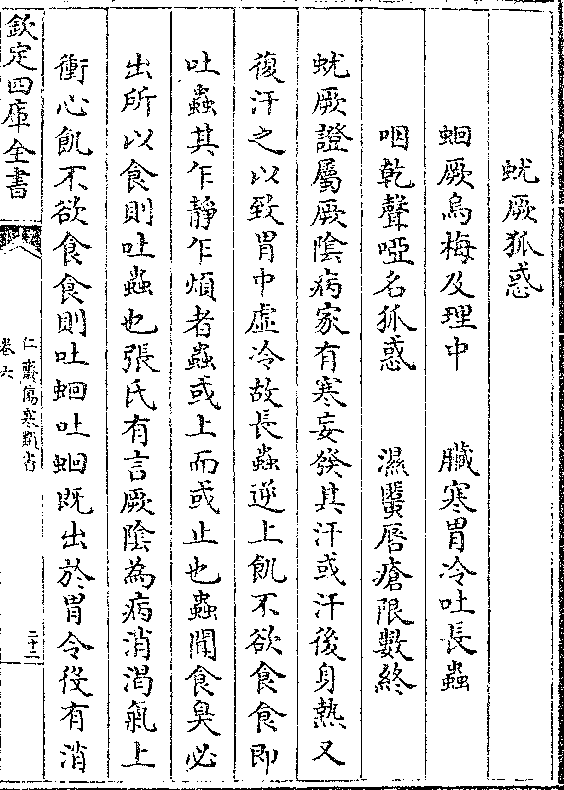 蚘厥狐惑
蛔厥烏梅及理中　臟寒胃冷吐長蟲
咽乾聲啞名狐惑　濕䘌唇瘡限數終
蚘厥證屬厥陰病家有寒妄發其汗或汗後身熱又
復汗之以致胃中虛冷故長蟲逆上飢不欲食食即
吐蟲其乍靜乍煩者蟲或上而或止也蟲聞食臭必
出所以食則吐蟲也張氏有言厥陰為病消渴氣上
衝心飢不欲食食則吐蛔吐蛔既出於胃令役有消
欽定四庫全書
仁齋傷寒類書
卷六
二十二